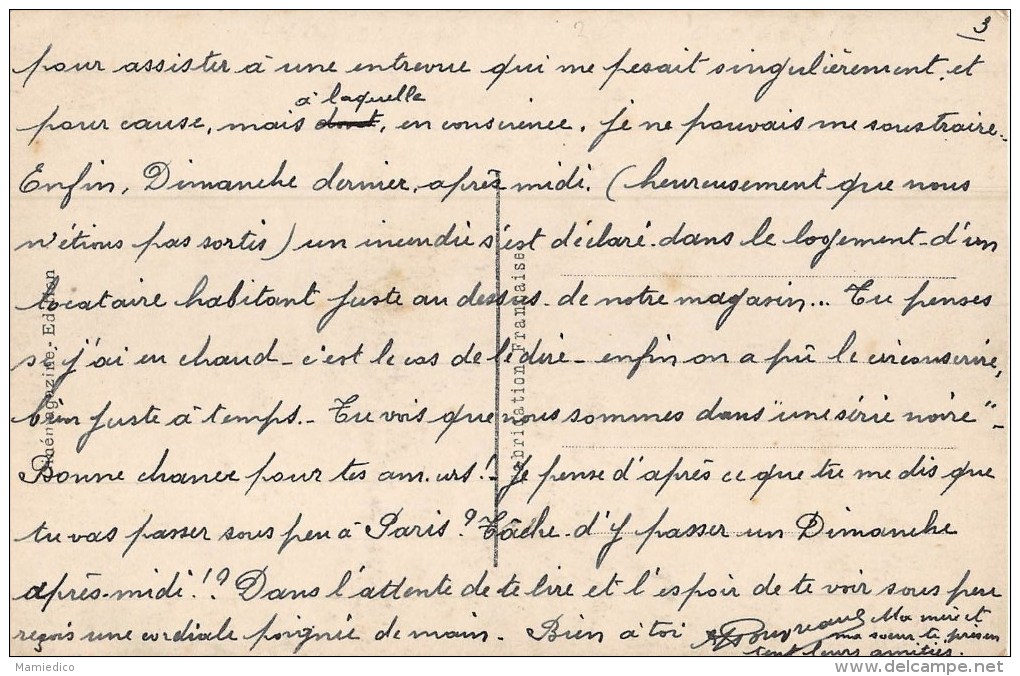 3
pour assister à une entrevue qui me pesait singulièrement, et
à laquelle
pour cause, mais dont, en conscience, je ne pouvais me soustraire.
Enfin, Dimanche dernier, après midi, (heureusement que nous
n'étions pas sortis) un incendie s'est déclaré dans le logement d'un
locataire habitant juste au dessus de notre magasin... Tu penses
si j'ai eu chaud - c'est le cas de le dire - enfin on a pû le circonscrire,
bien juste à temps. - Tu vois que nous sommes dans "une série noire" -
Bonne chance pour tes am.urs! - Je pense d'après ce que tu me dis que
tu vas passer sous peu à Paris? Tâche d'y passer un Dimanche
après-midi!? Dans l'attente de te lire et l'espoir de te voir sous peu
reçois une cordiale poignée de main. Bien à toi
Ma mère et
ma soeur te présen
tent leurs amitiés.
Cinémagazine, Edition
Fabrication Française
Mamiedico
delcampe.net